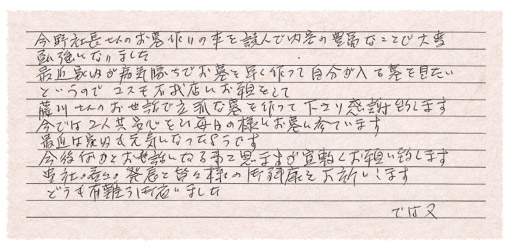 今野社長さんのお墓作りの本を読んで内容の豊富なことで大変
勉強になりました
最近家内が病気勝ちでお墓を早く作って自分が入る墓を見たい
というのでコスモ石材店にお願をして
藤川さんのお世話で立派な墓を作って下さり感謝致します
今では2人共安心をし毎日の様にお墓に参ています
最近は家内も元気になったようです
今後何かとお世話になる事と思ますが宜敷くお願い致します
貴社の益々の発展と皆々様の御健康をお祈いします
どうも有難う御座いました
では又